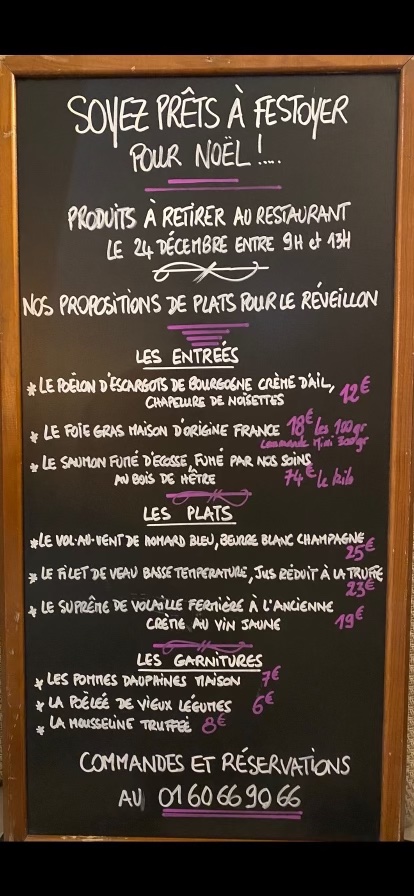 SOYEZ PRÊTS À FESTOYER
POUR NOËL !....
PRODUITS À RETIRER AU RESTAURANT
LE 24 DÉCEMBRE ENTRE 9H et 13H
NOS PROPOSITIONS DE PLATS POUR LE RÉVEILLON
LES ENTREÉS
* LE POÊLON D'ESCARGOTS DE BOURGOGNE CRÈME D'AIL, 12€
CHAPELURE DE NOISETTES
* LE FOIE GRAS MAISON D'ORIGINE FRANCE 18€ les 100gr
Commande Mini 300gr
* LE SAUMON FUMÉ D'ECOSSE, FUMÉ PAR NOS SOINS
AU BOIS DE HÊTRE 74€ le kilo
LES PLATS
* LE VOL-AU-VENT DE HOMARD BLEU, BEURRE BLANC CHAMPAGNE
25€
* LE FILET DE VEAU BASSE TEMPERATURE, JUS RÉDUIT À LA TRUFFE
23€
* LE SUPRÊME DE VOLAILLE FERMIÈRE À L'ANCIENNE
CRÈME AU VIN JAUNE 19€
LES GARNITURES
* LES POMMES DAUPHINES MAISON 7€
* LA POÊLÉE DE VIEUX LÉGUMES 6€
* LA MOUSSELINE TRUFFEÉ 8€
COMMANDES ET RÉSERVATIONS
AU 01 60 66 90 66